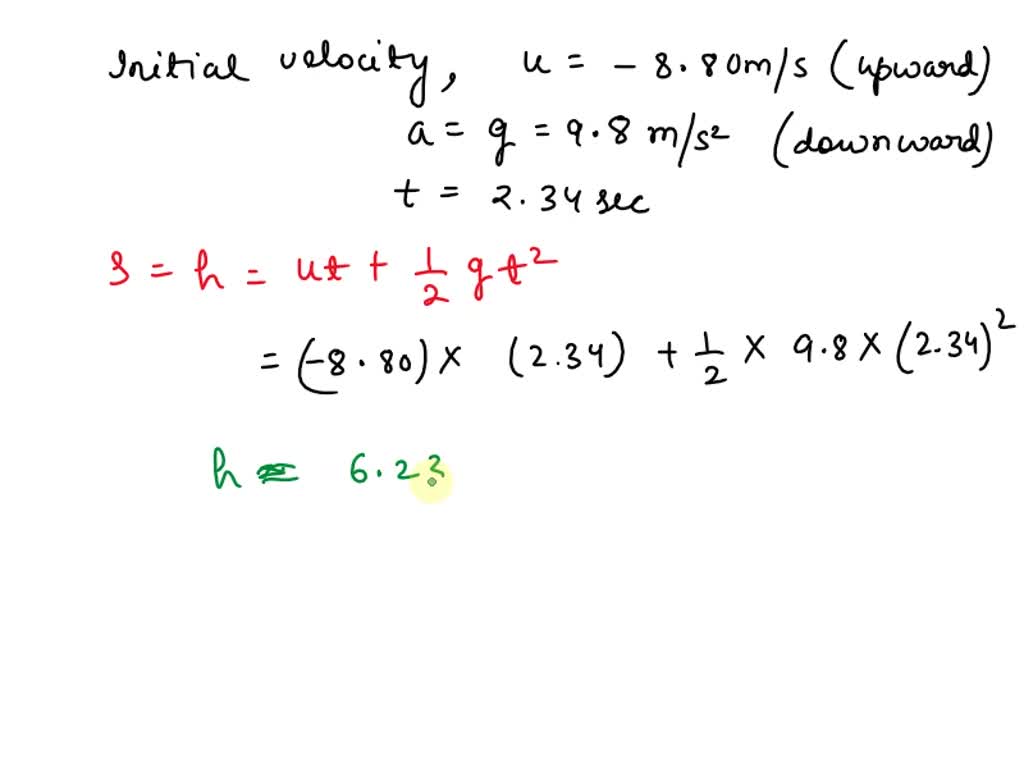 Initial velocity, u = - 8.80m/s (upward)
a = g = 9.8 m/s² (downward)
t = 2.34 sec
S = h = ut + 1/2 gt²
= (-8.80) × (2.34) + 1/2 × 9.8 × (2.34)²
h = 6.23